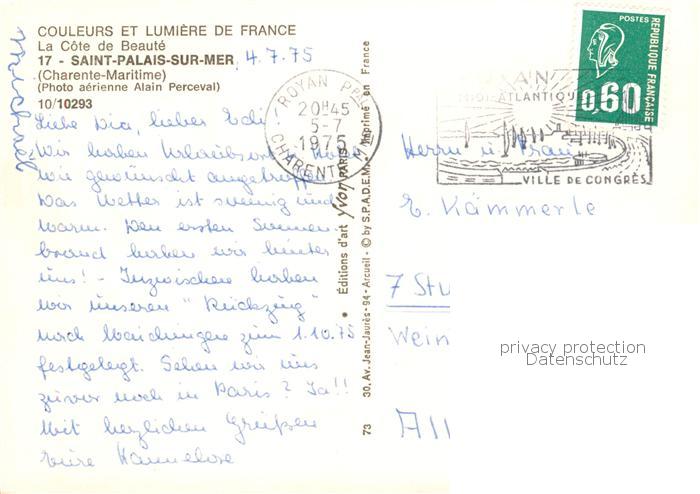 COULEURS ET LUMIÈRE DE FRANCE
La Côte de Beauté
17 - SAINT-PALAIS-SUR-MER 4.7.75
(Charente-Maritime)
(Photo aérienne Alain Perceval)
10/10293
Liebe Pia, lieber Edi!
Wir haben Urlaubsort
wie gewünscht angetroffen
Das Wetter ist sonnig und
warm. Den ersten Sonnen-
brand haben wir hinter
uns! - Inzwischen haben
wir unseren "Rückzug"
nach Maichingen zum 1.10.75
festgelegt. Sehen wir uns
zuvor noch in Paris? Ja!!
Mit herzlichen Grüßen
Eure Hannelore
ROYAN PPAL
20H45
5-7
1975
CHARENTE-MME
Editions d'art Yvon PARIS
30, Av. Jean-Jaurès - 94 - Arcueil - © by S.P.A.D.E.M. - Imprimé en France
73
ROYAN
MIDI-ATLANTIQUE
VILLE DE CONGRÈS
POSTES
RÉPUBLIQUE FRANÇAISE
0,60
Herrn u. Frau
E. Kämmerle
7 Stu
Wein
All
privacy protection
Datenschutz